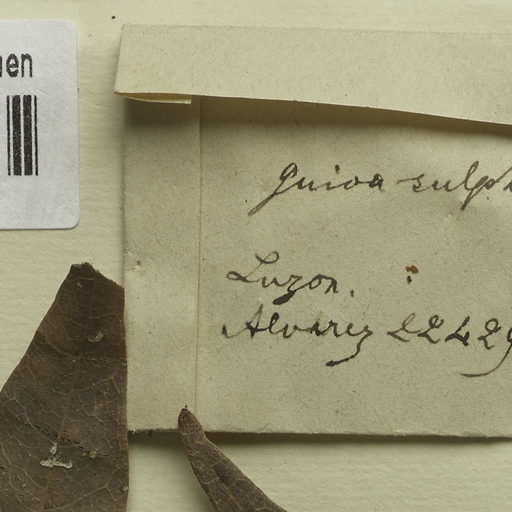 en
Guioa sulph
Luzon.
Alvarez 22429